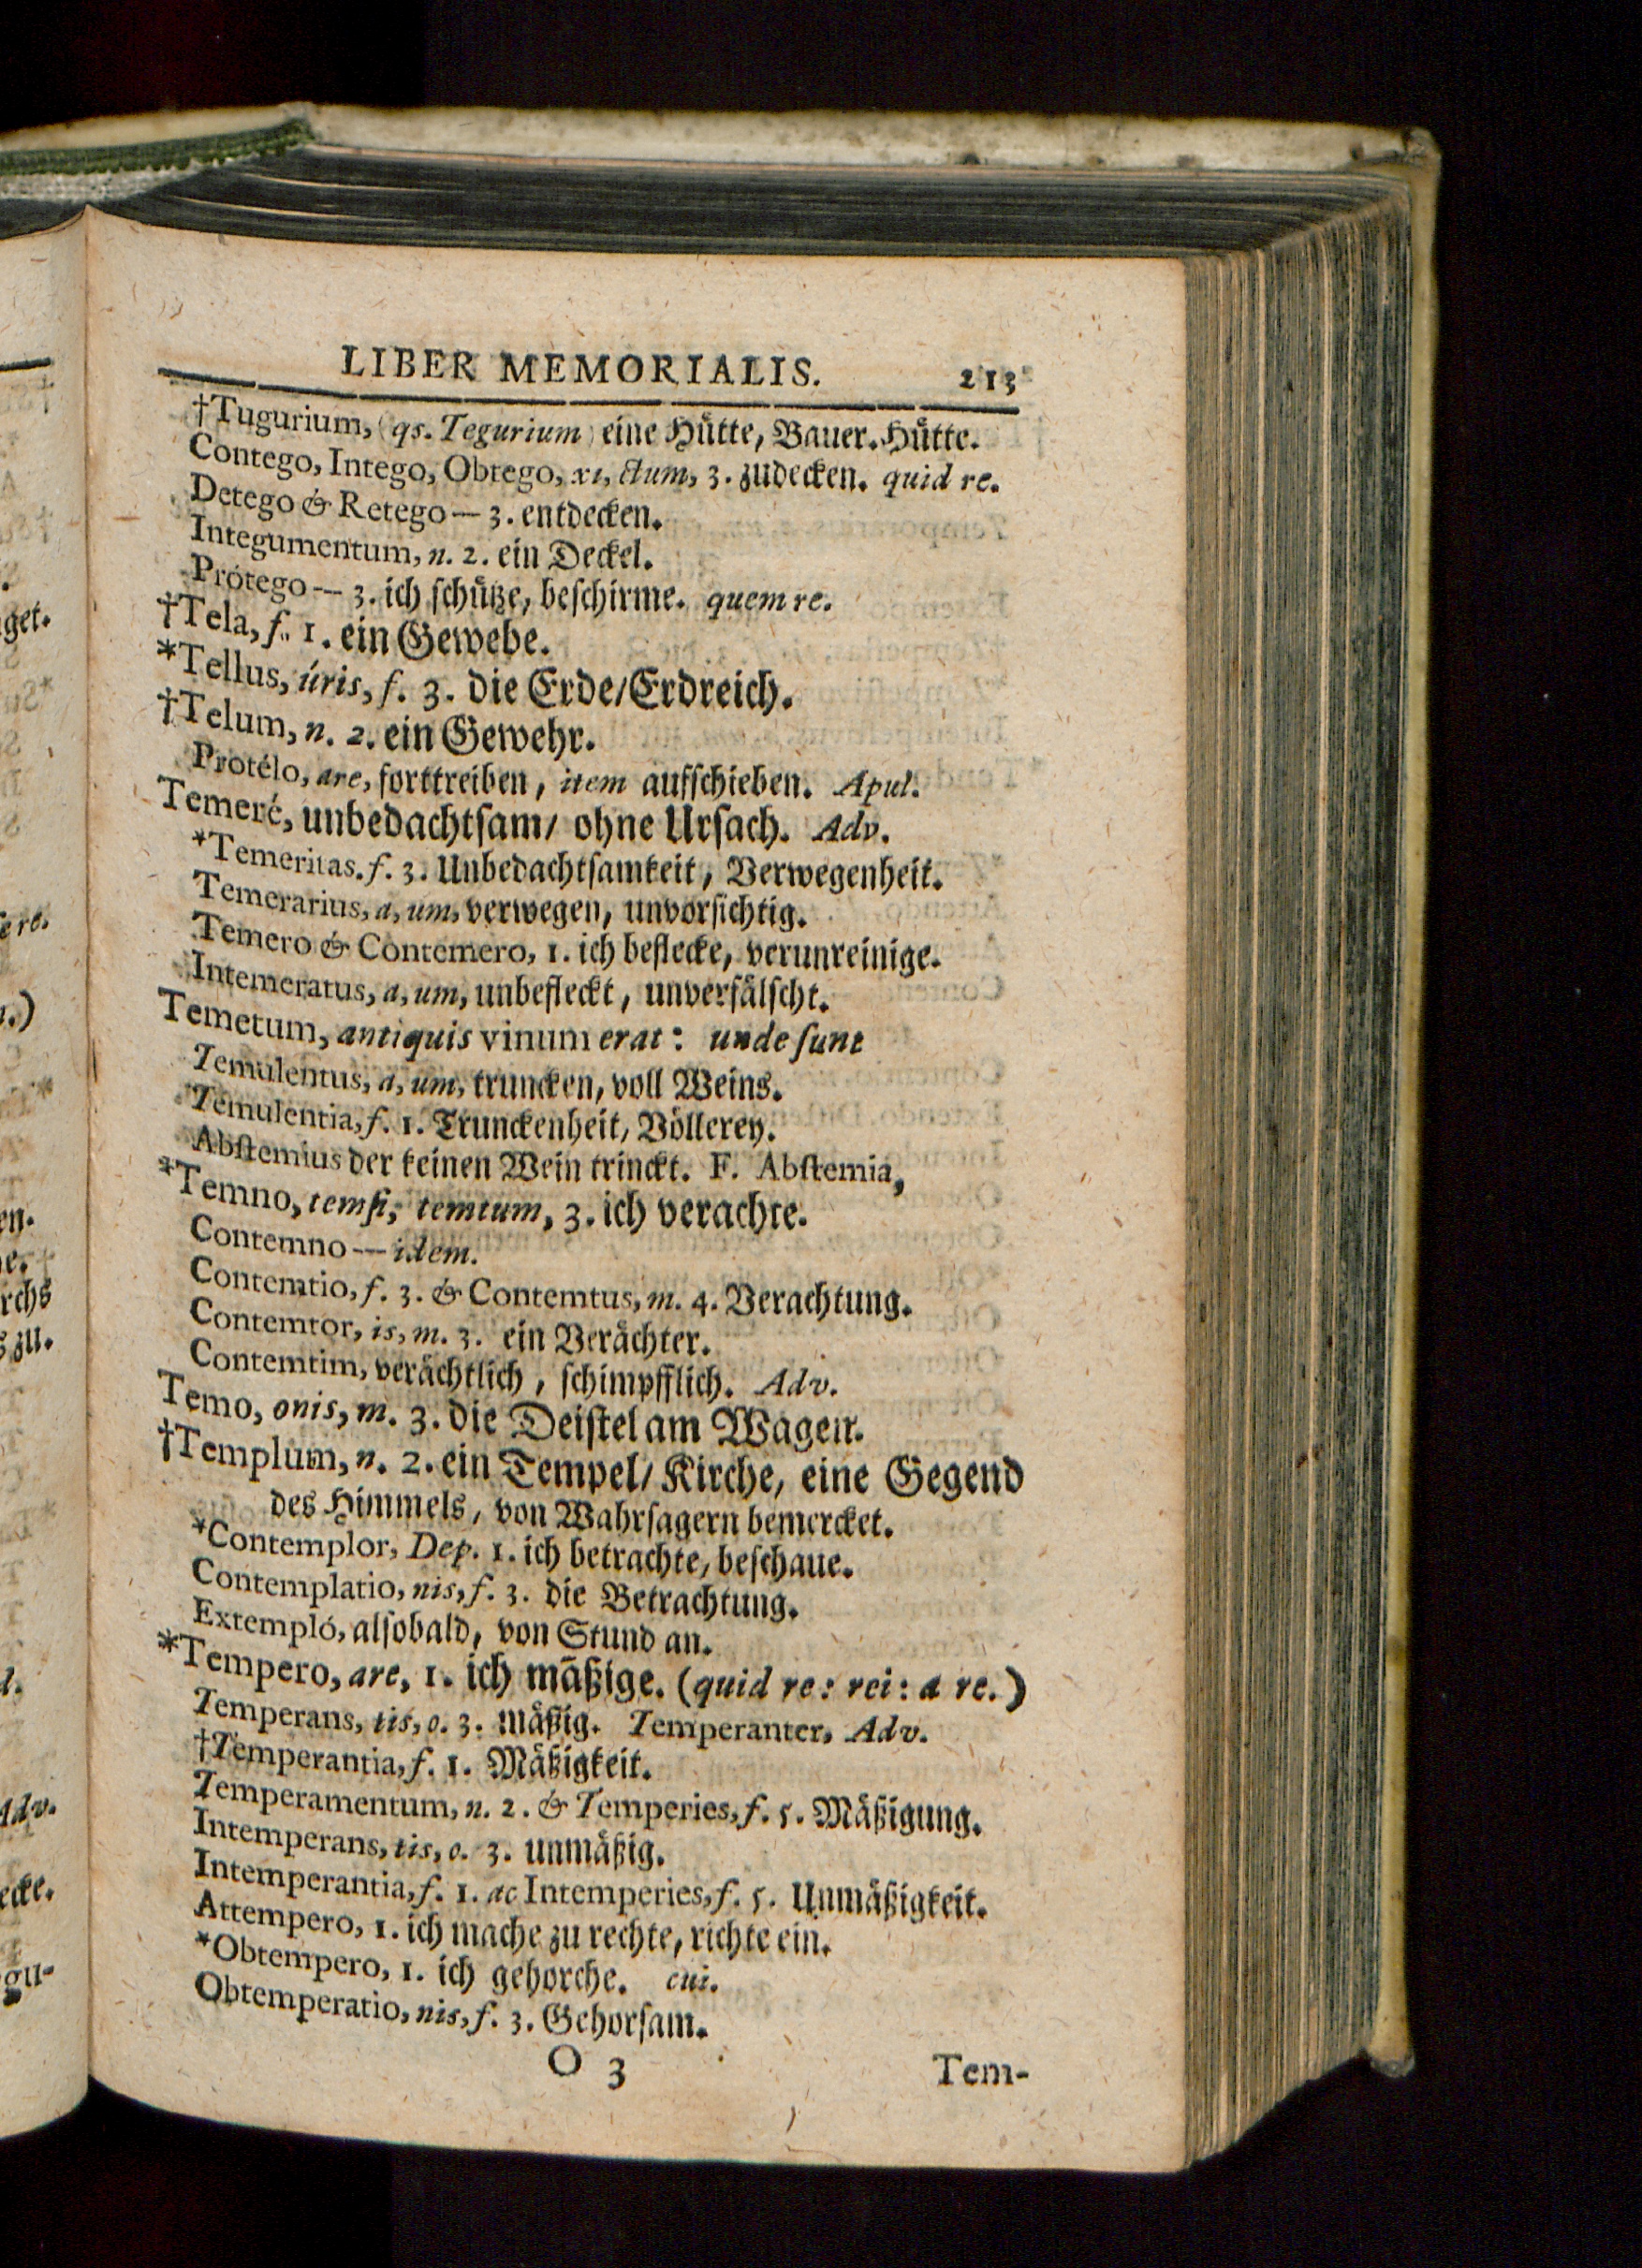 LIBER MEMORIALIS. 213
†Tugurium, (qs. Tegurium) eine Hütte, Bauer-Hütte.
Contego, Intego, Obtego, xi, ctum, 3. zudecken. quid re.
Detego & Retego — 3. entdecken.
Integumentum, n. 2. ein Deckel.
Prótego — 3. ich schütze, beschirme. quem re.
†Tela, f. 1. ein Gewebe.
*Tellus, úris, f. 3. die Erde/Erdreich.
†Telum, n. 2. ein Gewehr.
Protélo, are, forttreiben, item aufschieben. Apul.
Temeré, unbedachtsam/ ohne Ursach. Adv.
*Temeritas. f. 3. Unbedachtsamkeit, Verwegenheit.
Temerarius, a, um, verwegen, unvorsichtig.
Temero & Contemero, 1. ich beflecke, verunreinige.
Intemeratus, a, um, unbefleckt, unverfälscht.
Temetum, antiquis vinum erat: unde sunt
Temulentus, a, um, truncken, voll Weins.
Temulentia, f. 1. Trunckenheit, Völlerey.
Abstemius der keinen Wein trinckt. F. Abstemia,
*Temno, temsi, temtum, 3. ich verachte.
Contemno — idem.
Contemtio, f. 3. & Contemtus, m. 4. Verachtung.
Contemtor, is, m. 3. ein Verächter.
Contemtim, verächtlich, schimpfflich. Adv.
Temo, onis, m. 3. die Deistel am Wagen.
†Templum, n. 2. ein Tempel/ Kirche, eine Gegend
des Himmels, von Wahrsagern bemercket.
*Contemplor, Dep. 1. ich betrachte, beschaue.
Contemplatio, nis, f. 3. die Betrachtung.
Extempló, alsobald, von Stund an.
*Tempero, are, 1. ich mäßige. (quid re: rei: a re.)
Temperans, tis, o. 3. mäßig. Temperanter, Adv.
†Temperantia, f. 1. Mäßigkeit.
Temperamentum, n. 2. & Temperies, f. 5. Mäßigung.
Intemperans, tis, o. 3. unmäßig.
Intemperantia, f. 1. ac Intemperies, f. 5. Unmäßigkeit.
Attempero, 1. ich mache zu rechte, richte ein.
*Obtempero, 1. ich gehorche. cui.
Obtemperatio, nis, f. 3. Gehorsam.
O 3 Tem-